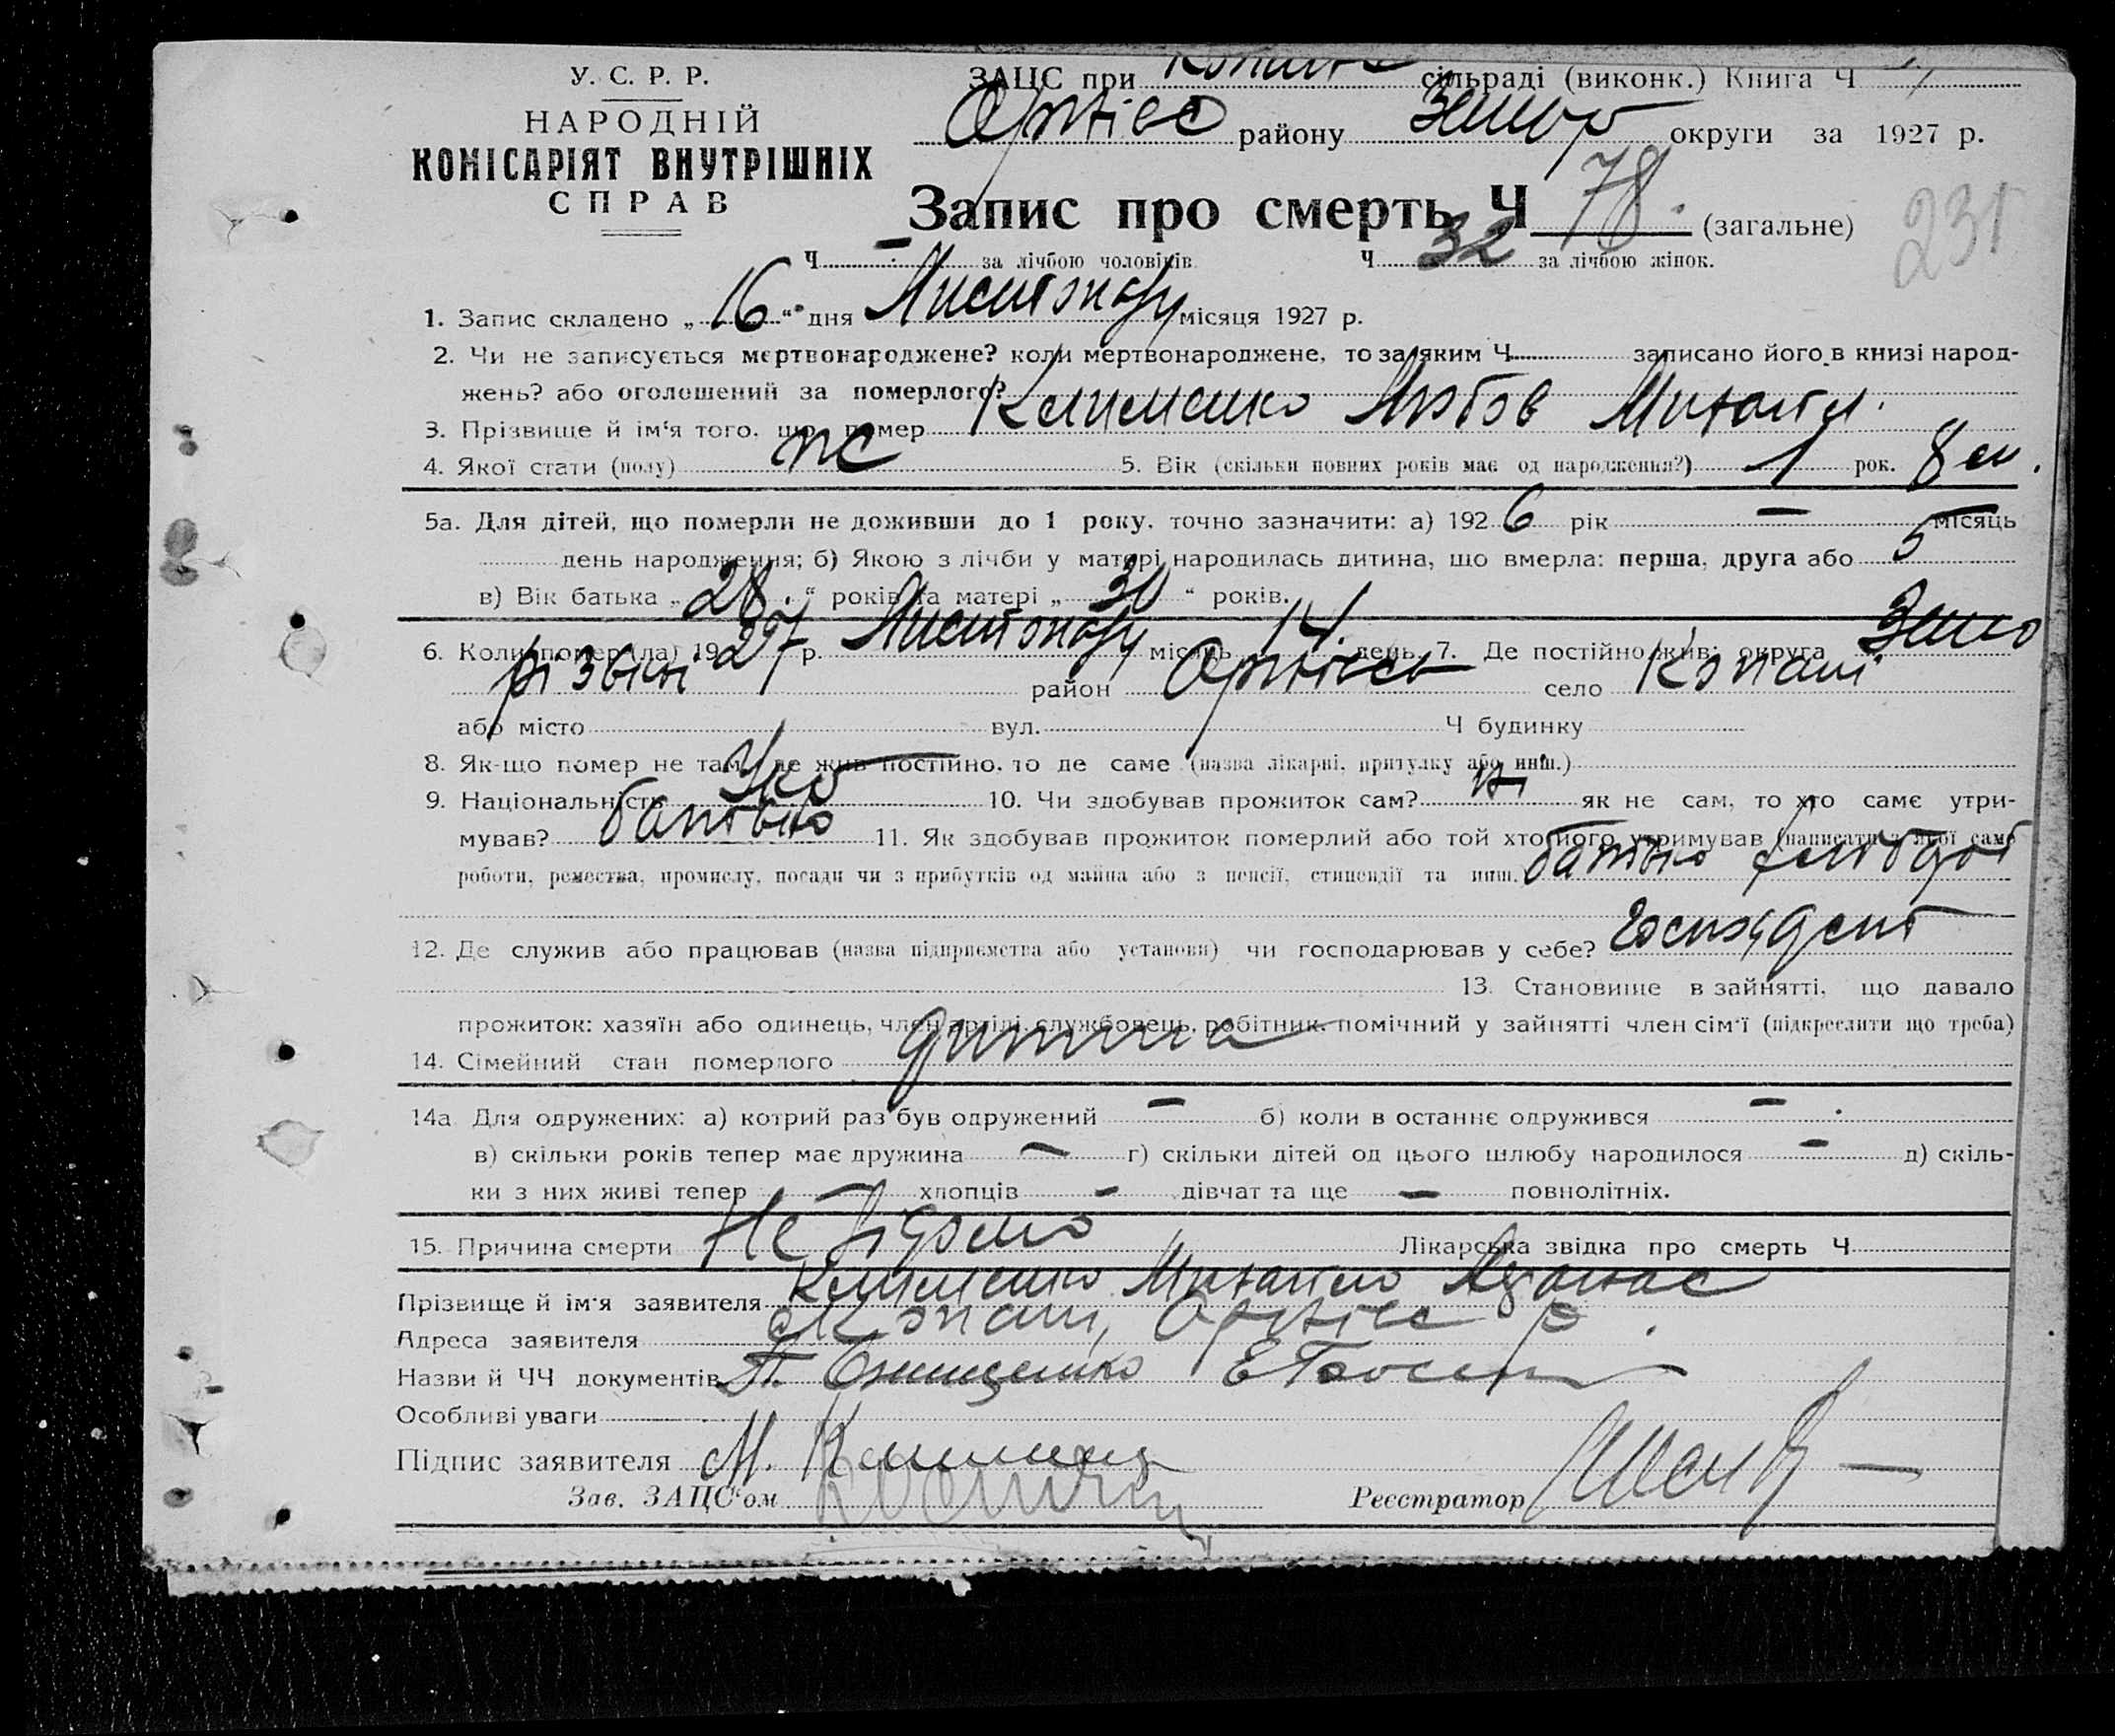 У. С. Р. Р.
НАРОДНІЙ
КОМІСАРІЯТ ВНУТРІШНІХ
СПРАВ
ЗАЦС при сільраді (виконк.) Книга Ч
Оріхівс району округи за 1927 р.
Запис про смерть Ч 78. (загальне)
231
Ч - за лічбою чоловіків Ч 32 за лічбою жінок.
1. Запис складено „16“ дня Листопаду місяця 1927 р.
2. Чи не записується мертвонароджене? коли мертвонароджене, то за яким Ч записано його в книзі народ-
жень? або оголошений за померлого?
3. Прізвище й ім'я того, що помер Клименко Любов Михайл.
4. Якої стати (полу) ж 5. Вік (скільки повних років має од народження?) 1 рок. 8 м.
5а. Для дітей, що померли не доживши до 1 року, точно зазначити: а) 1926 рік — місяць
день народження; б) Якою з лічби у матері народилась дитина, що вмерла: перша, друга або 5
в) Вік батька „28.“ років та матері „30“ років.
6. Коли помер (ла) 1927 р. Листопаду місяць 14. день, 7. Де постійно жив: округа Запо
різькі район Оріхівськ село Копані
або місто вул. Ч будинку
8. Як-що помер не там, де жив постійно, то де саме (назва лікарні, притулку або инш.)
9. Національність Укр 10. Чи здобував прожиток сам? ні як не сам, то хто саме утри-
мував? батько 11. Як здобував прожиток померлий або той хто його утримував (написати з якої саме
роботи, ремества, промислу, посади чи з прибутків од майна або з пенсії, стипендії та инш. батько хлібороб
12. Де служив або працював (назва підприємства або установи) чи господарював у себе?
13. Становище в зайнятті, що давало
прожиток: хазяїн або одинець, член артілі, службовець, робітник, помічний у зайнятті член сім'ї (підкреслити що треба)
14. Сімейний стан померлого дитина
14а Для одружених: а) котрий раз був одружений — б) коли в останнє одружився —
в) скільки років тепер має дружина — г) скільки дітей од цього шлюбу народилося — д) скіль-
ки з них живі тепер — хлопців - дівчат та ще — повнолітніх.
15. Причина смерти Не відомо Лікарська звідка про смерть Ч
Прізвище й ім'я заявителя Клименко Михайло Афанас
Адреса заявителя с Копані, Оріхівс р.
Назви й ЧЧ документів П. Онищенко
Особливі уваги
Підпис заявителя М. Клименко
Зав. ЗАЦС'ом
Реєстратор